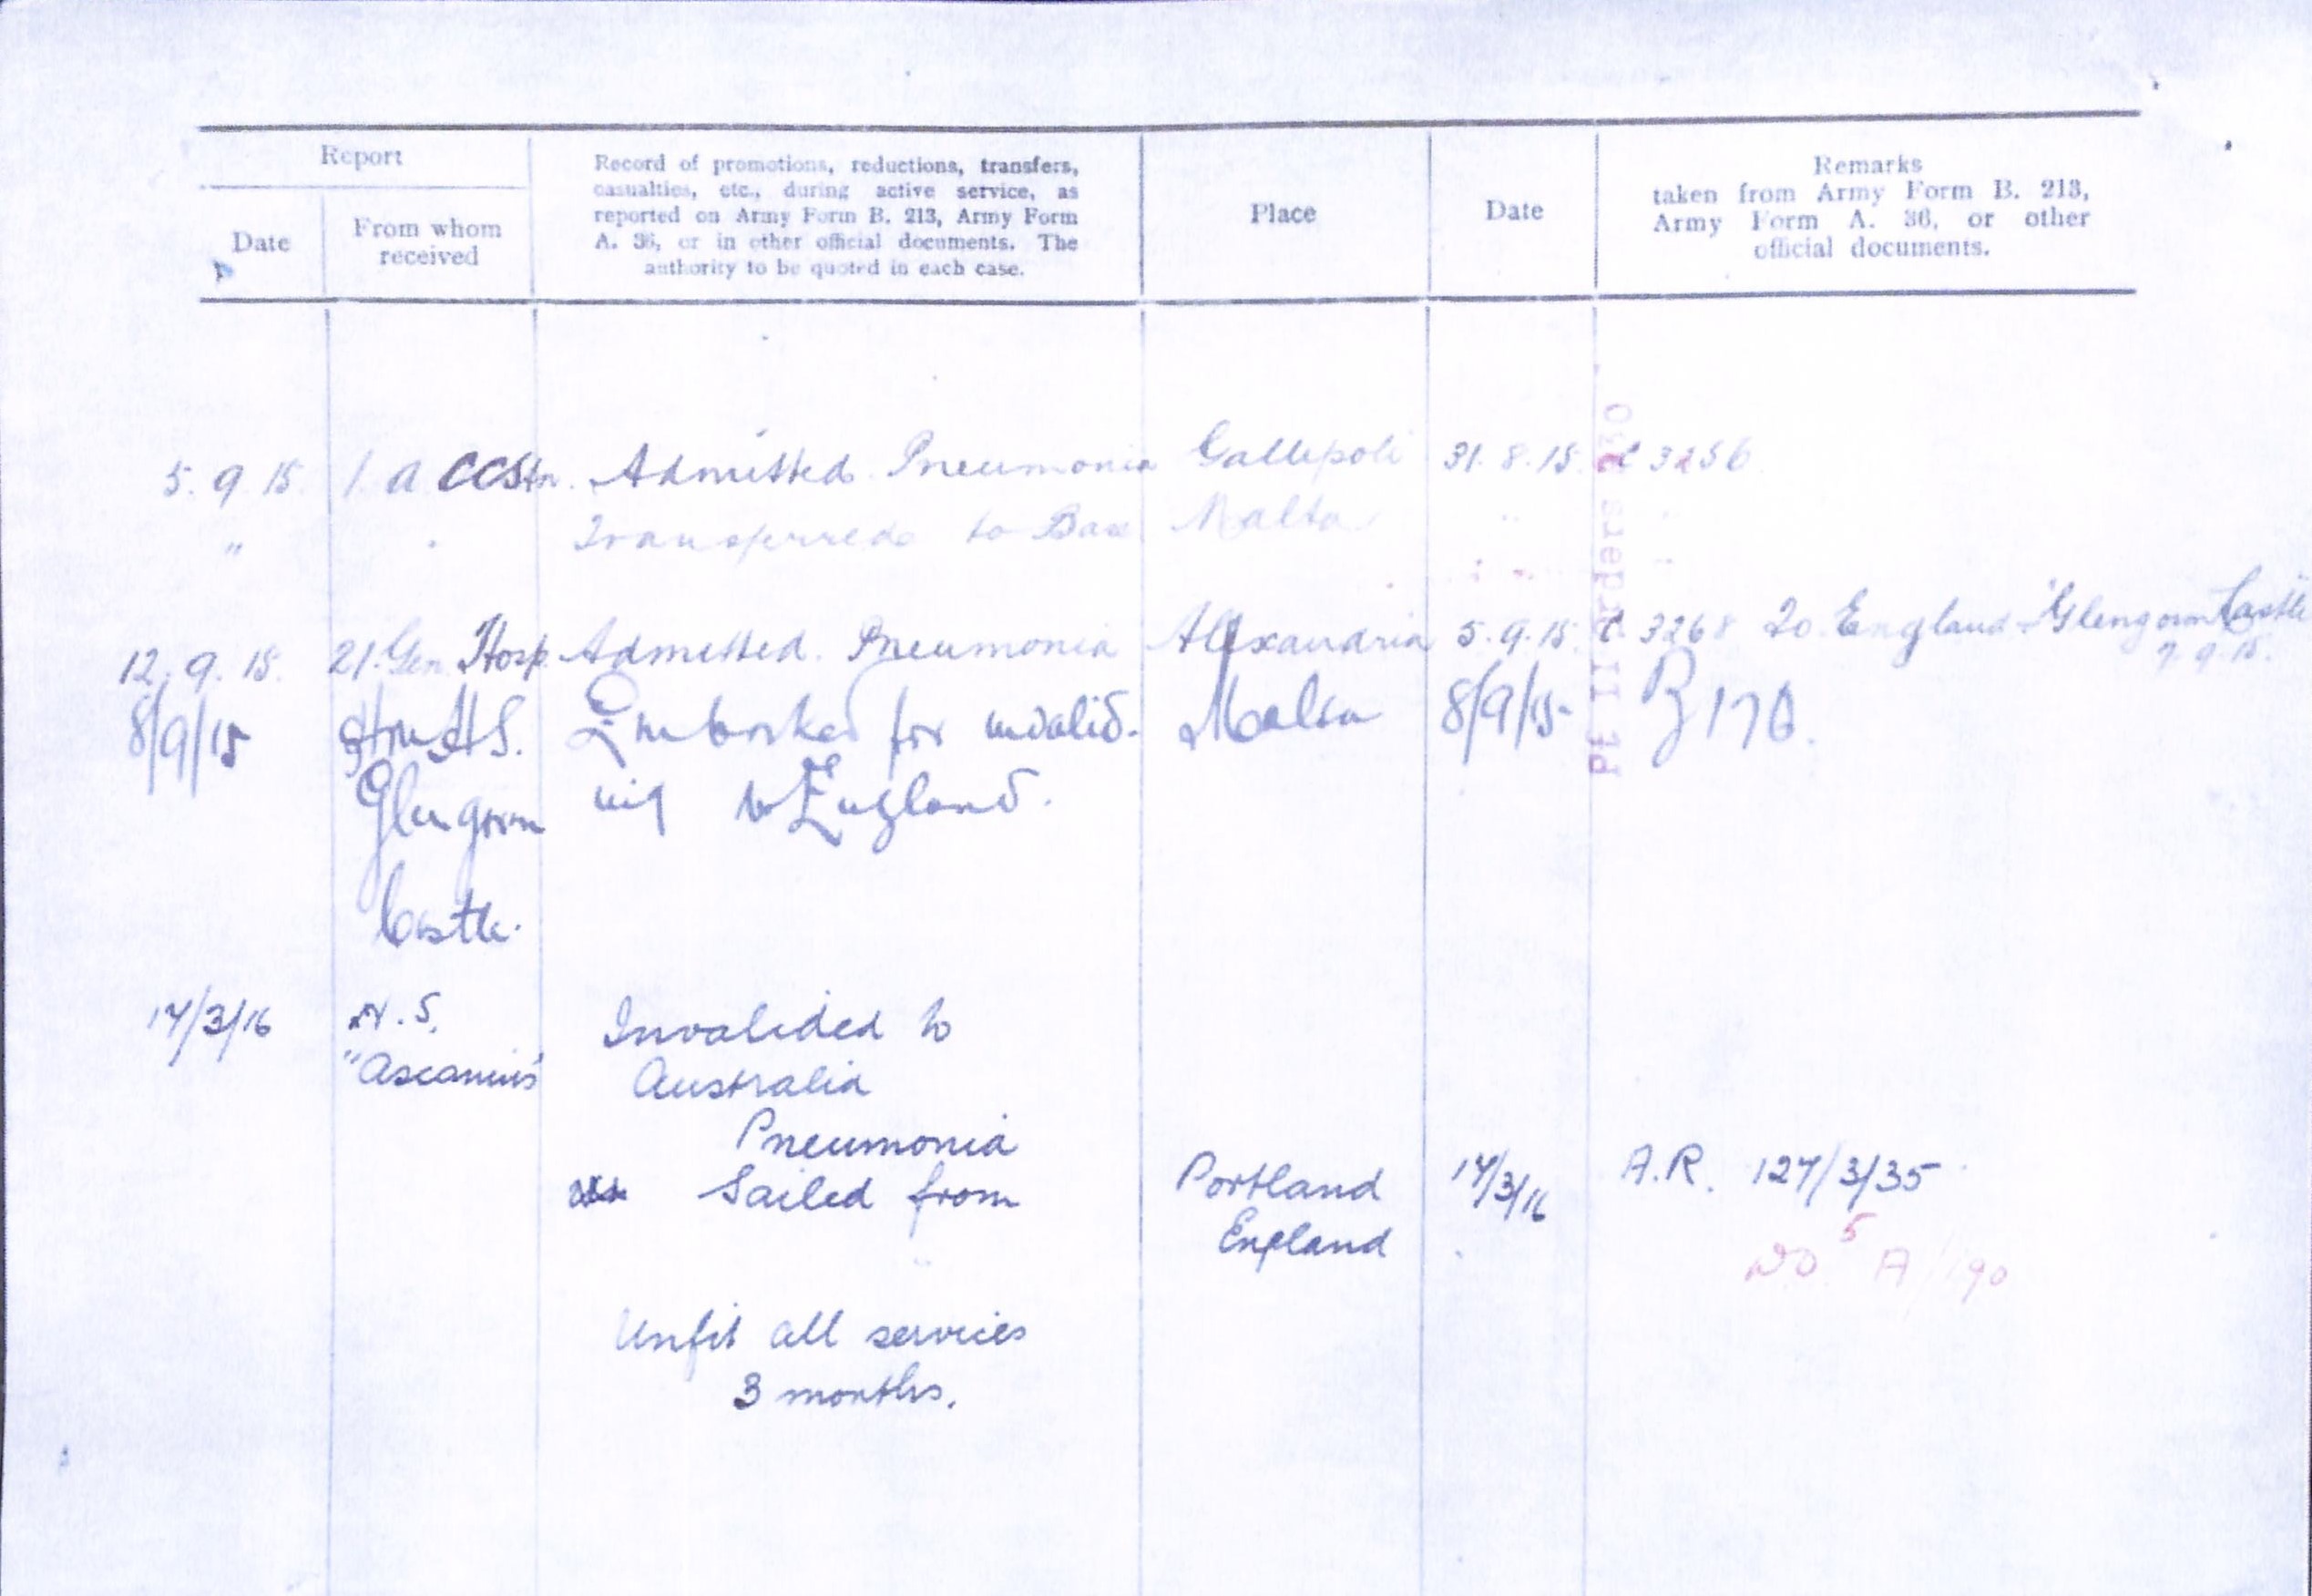 Report
Date
From whom
received
Record of promotions, reductions, transfers,
casualties, etc., during active service, as
reported on Army Form B. 213, Army Form
A. 36, or in other official documents. The
authority to be quoted in each case.
Place
Date
Remarks
taken from Army Form B. 213,
Army Form A. 36, or other
official documents.
5. 9. 15. 1. A CCStn. Admitted. Pneumonia Gallipoli 31. 8. 15. C 3256
" Transferred to Base Malta " "
12. 9. 15. 21. Gen. Hosp. Admitted. Pneumonia Alexandria 5. 9. 15. C. 3268 To England "Glengorm Castle
9. 9. 15.
8/9/15 H.S. Embarked for invalid- Malta 8/9/15- B 176.
Glengorm ing to England.
Castle.
Pt II Orders 230
17/3/16 H.S. Invalided to
"Ascanius" Australia
Pneumonia
Sailed from Portland 17/3/16 A.R. 127/3/35
England
5
DO A/190
Unfit all services
3 months.